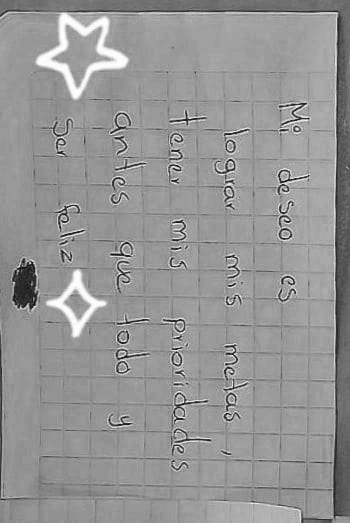 Mi deseo es
lograr mis metas,
tener mis prioridades
antes que todo y
ser feliz